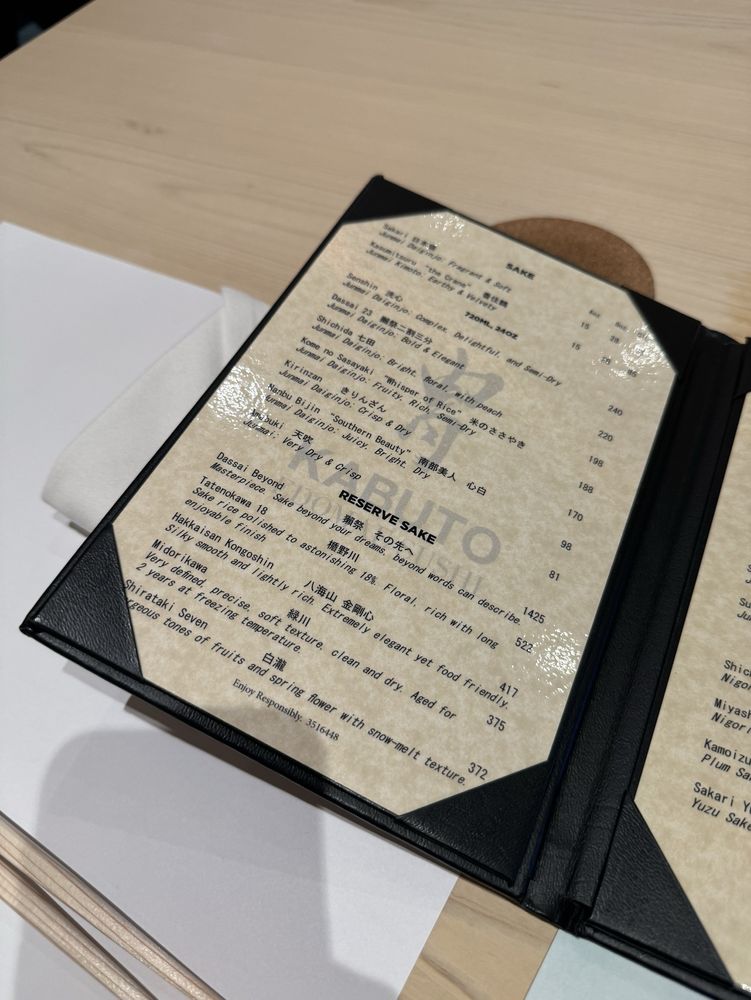 SAKE
Sakari 日本盛
Junmai Daiginjo: Fragrant & Soft 15
Kasumitsuru "the Crane" 香住鶴
Junmai Kimoto, Earthy & Velvety 15
720ML, 24OZ
Senshin 洗心
Junmai Daiginjo: Complex, Delightful, and Semi-Dry 240
Dassai 23 獺祭二割三分
Junmai Daiginjo: Bold & Elegant 220
Shichida 七田
Junmai Daiginjo: Bright, floral, with peach 198
Kome no Sasayaki "Whisper of Rice" 米のささやき
Junmai Daiginjo: Fruity, Rich, Semi-Dry 188
Kirinzan きりんざん
Junmai Daiginjo: Crisp & Dry 170
Nanbu Bijin "Southern Beauty" 南部美人 心白
Junmai Daiginjo: Juicy, Bright, Dry 98
天吹
Junmai: Very Dry & Crisp 81
KABUTO
RESERVE SAKE
Dassai Beyond 獺祭 その先へ
Masterpiece. Sake beyond your dreams, beyond words can describe. 1425
Tatenokawa 18 楯野川
Sake rice polished to astonishing 18%. Floral, rich with long
enjoyable finish 522
Hakkaisan Kongoshin 八海山 金剛心
Silky smooth and lightly rich. Extremely elegant yet food friendly. 417
Midorikawa 緑川
Very defined, precise, soft texture, clean and dry. Aged for
2 years at freezing temperature. 375
Shirataki Seven 白瀧
tones of fruits and spring flower with snow-melt texture. 372
Enjoy Responsibly. 3516448
Nigori
Miyash
Nigori
Kamoizu
Plum Sa
Sakari Yu
Yuzu Sake